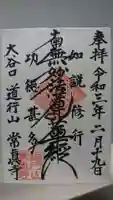 奉拝 令和三年二月廿九日
如説修行
南無妙法蓮華経
功徳甚多
大谷口 道行山 常真寺